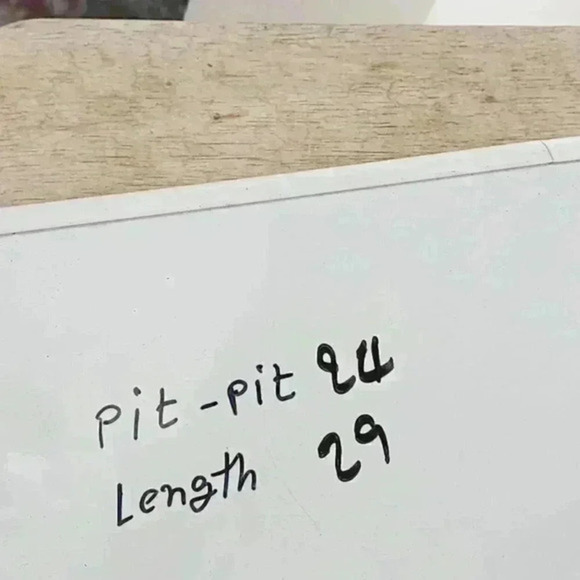 Pit-Pit 24
Length 29